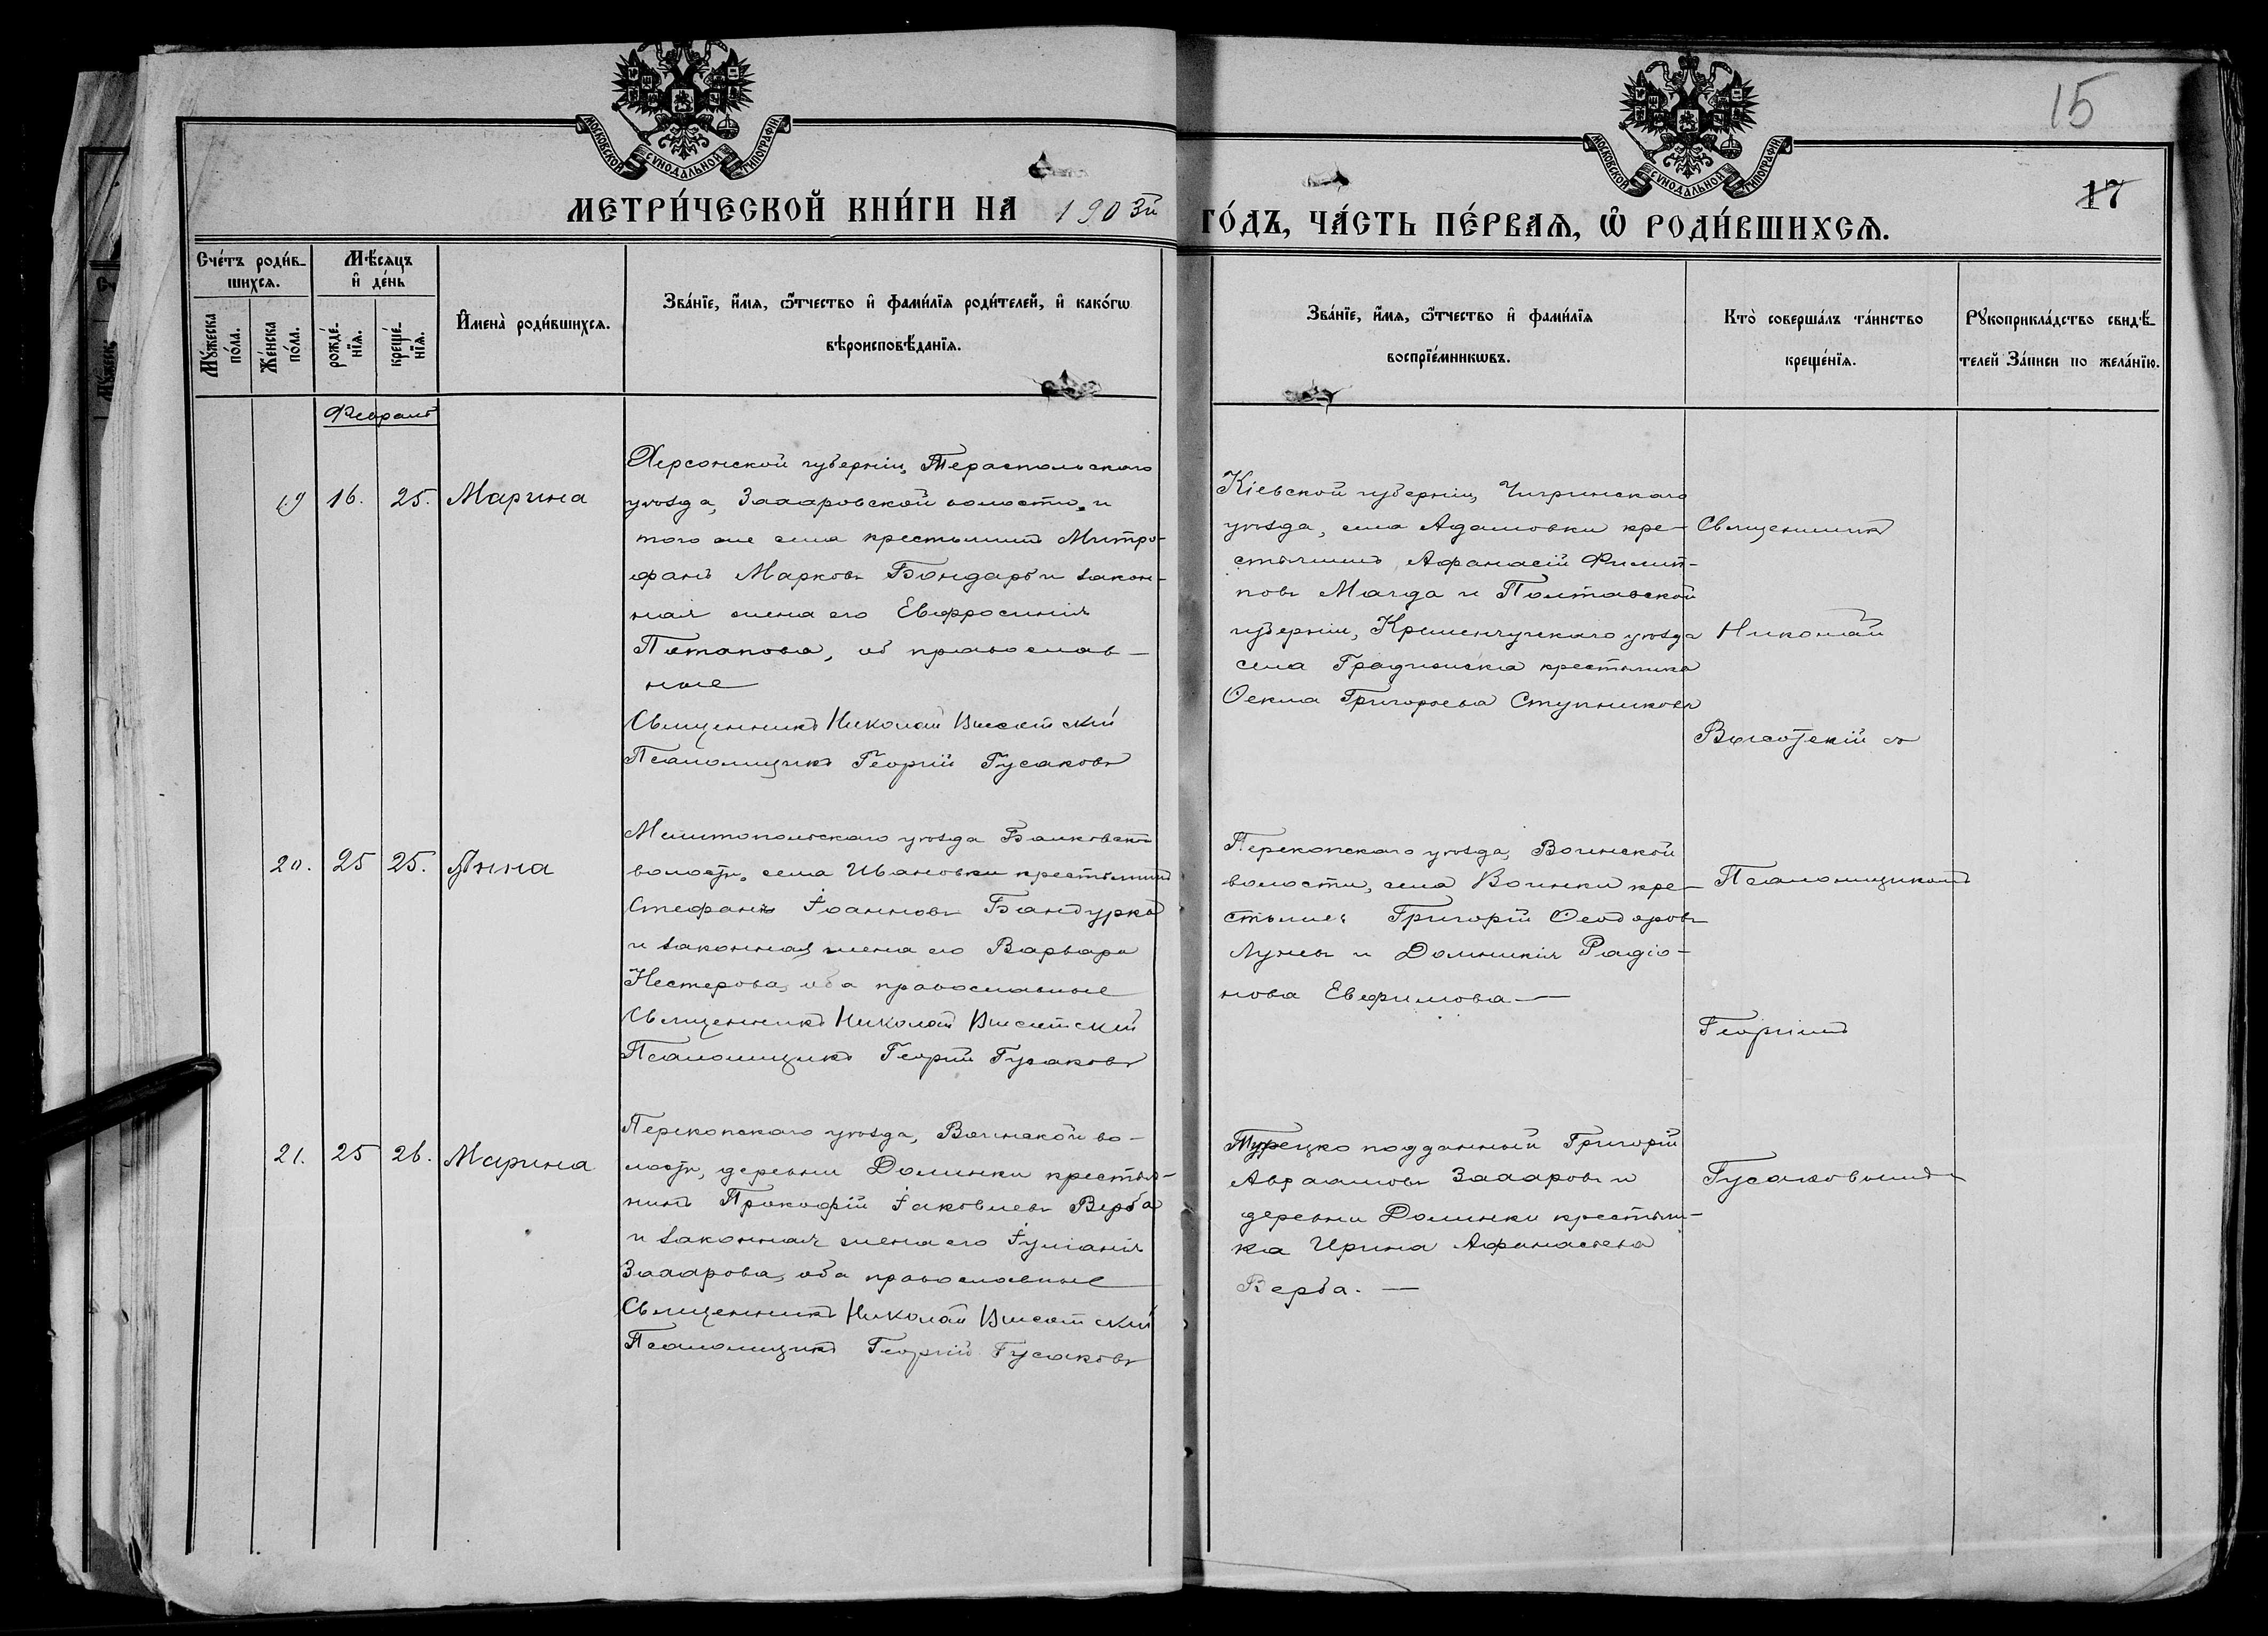 МОСКОВСКОЙ СѴНОДАЛЬНОЙ ТИПОГРАФІИ
МОСКОВСКОЙ СѴНОДАЛЬНОЙ ТИПОГРАФІИ
15
17
МЕТРИ́ЧЕСКОЙ КНИ́ГИ НА 1903й
ГО́ДЪ, ЧА́СТЬ ПЕ́РВАЯ, Ѡ РОДИ́ВШИХСЯ.
Сче́тъ роди́в-
шихся.
Мꙋ́жеска по́ла.
Же́нска по́ла.
Мѣ́сяцъ и де́нь
рожде́-нїя.
креще́-нїя.
Имена̀ роди́вшихся.
Зва́нїе, и́мя, ѻ́тчество и фами́лїя роди́телей, и како́гѡ
вѣроисповѣ́данїя.
Зва́нїе, и́мя, ѻ́тчество и фами́лїя
воспрїе́мникѡвъ.
Кто̀ соверша́лъ та́инство
креще́нїя.
Рꙋкоприкла́дство свидѣ́-
телей За́писи по жела́нїю.
Февраль
19 16. 25. Марина
Херсонской губерніи, Тераспольскаго
уѣзда, Захаровской волости и
того же села крестьянинъ Митро-
фанъ Марковъ Бондарь и закон-
ная жена его Евфросинія
Потапова, об православ-
ные
Священникъ Николай Высотскій
Псаломщикъ Георгій Гусаковъ
Кіевской губерніи, Чигринскаго
уѣзда, села Адамовки кре-
стьянинъ Афанасій Филип-
повъ Магда и Полтавской
губерніи, Кременчугскаго уѣзда
села Градижска крестьянка
Ѳекла Григорьева Ступникова
Священникъ
Николай
Высотскій съ
20. 25 25. Анна
Мелитопольскаго уѣзда Балковской
волости, села Ивановки крестьянинъ
Стефанъ Іоанновъ Бандурка
и законная жена его Варвара
Нестерова, оба православные
Священникъ Николай Высотскій
Псаломщикъ Георгій Гусаковъ
Перекопскаго уѣзда, Воинской
волости, села Воинки кре-
стьяне: Григорій Ѳеодоровъ
и Домникія Радіо-
нова Евфимова
Псаломщикомъ
Георгіемъ
21. 25 26. Марина
Перекопскаго уѣзда, Воинской во-
лости, деревни Долинки крестья-
нинъ Прокофій Іаковлевъ Верба
и законная жена его Іуліанія
Захарова, оба православные
Священникъ Николай Высотскій
Псаломщикъ Георгій Гусаковъ
Турецко подданный Григорій
Авраамовъ Захаровъ и
деревни Долинки крестьян-
ка Ирина Афанасьева
Верба.
Гусаковымъ